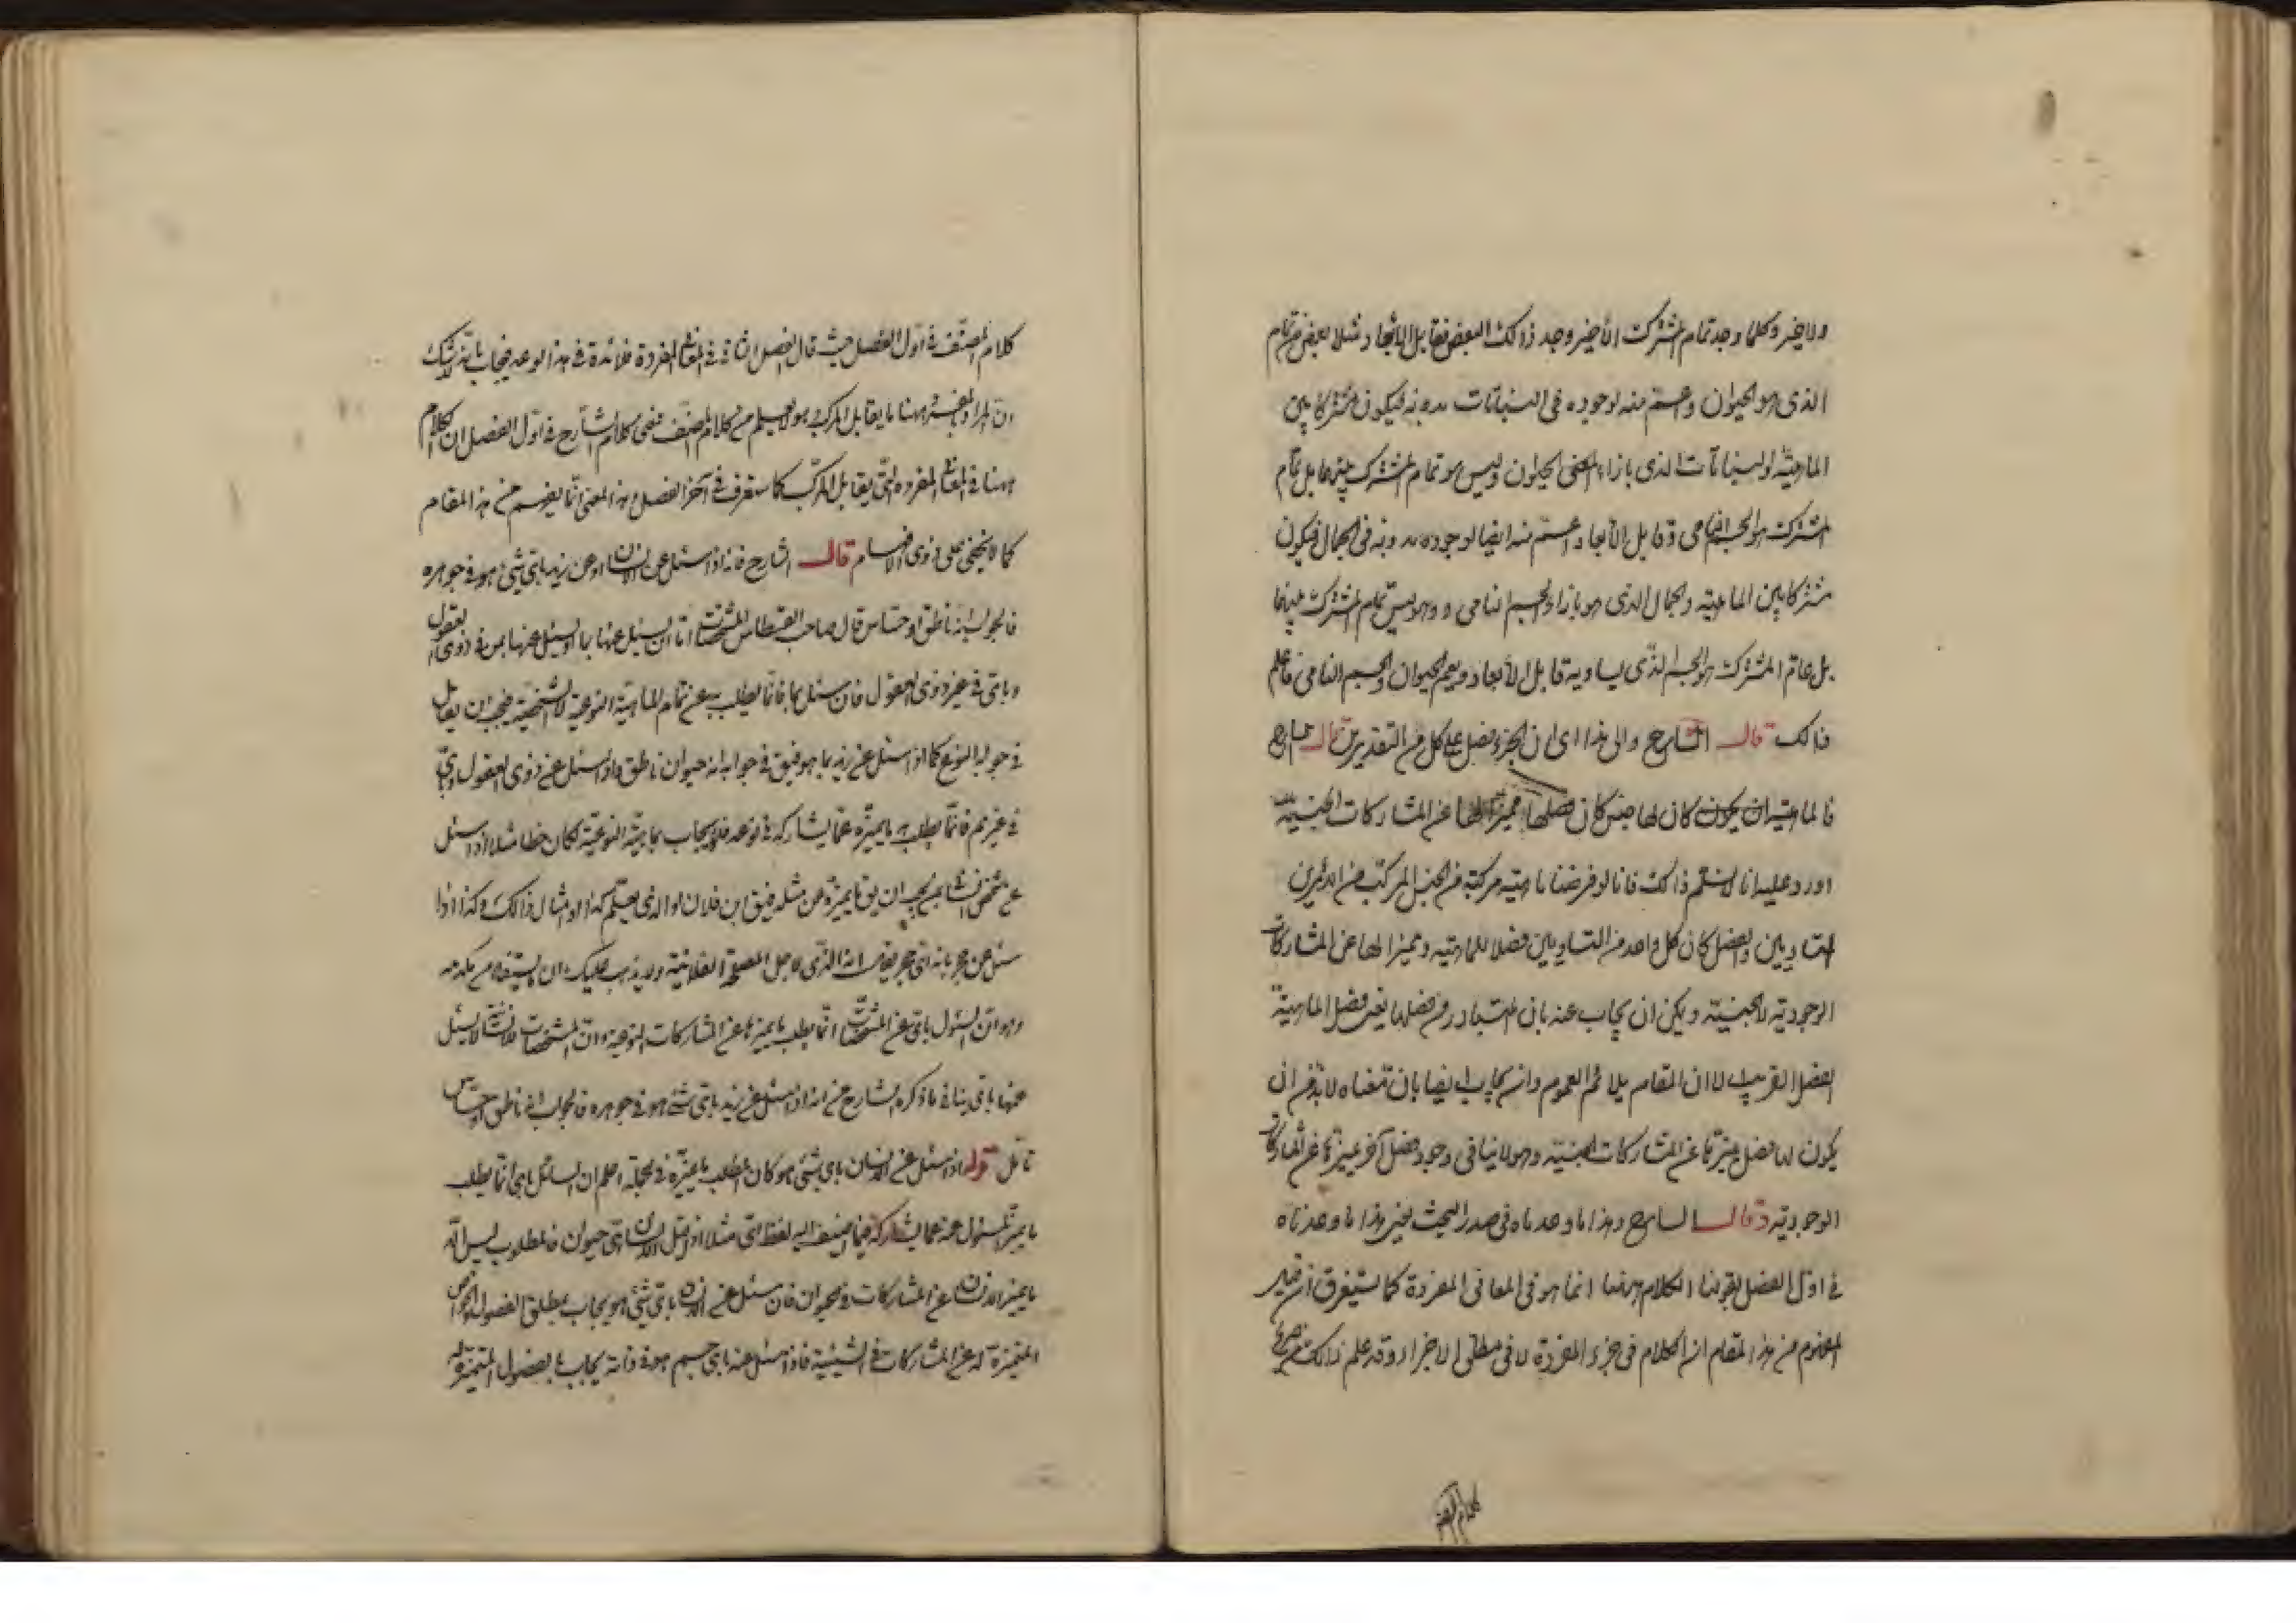 ولا ضير وكلما وجد تمام المشترك الأخير وجد ذلك البعض فقابل الأبعاد مثلا بعض من تمام
الذي هو الحيوان وأعم منه لوجوده في النباتات بدونه فيكون مشتركا بين
الماهية والنباتات الذي بازاء الحيوان وليس هو تمام المشترك بينهما بل تمام
المشترك هو الجسم النامي وقابل الأبعاد أعم منه أيضا لوجوده بدونه في الجمال فيكون
مشتركا بين الماهية والجمال الذي هو بازاء الجسم النامي وهو ليس تمام المشترك بينهما
بل تمام المشترك هو الجسم الذي يساويه قابل الأبعاد ويعم الحيوان والجسم النامي فاعلم
ذلك قال الشارح والى هذا اى ان الجزء فصل على كل من التقديرين قال الشارح
فالماهية ان يكون كان لها جنس كان فصلها مميزا لها عن المشاركات الجنسية
اورد عليه انا لا نسلم ذلك فانا لو فرضنا ماهية مركبة من الجنس المركب من امرين
متساويين والفصل كان كل واحد من المتساويين فصلا للماهية ومميزا لها عن المشاركات
الوجودية لا الجنسية ويمكن ان يجاب عنه بان المتبادر من فصلها يعنى فصل الماهية
الفصل القريب الا ان المقام يلائم العموم وان يجاب ايضا بان معناه لا بد من ان
يكون لها فصل يميزها عن المشاركات الجنسية وهو لا ينافى وجود فصل آخر يميزها عن المشاركات
الوجودية قال الشارح وهذا ما وعدناه فى صدر البحث يعنى هذا ما وعدناه
فى اول الفصل بقولنا الكلام ههنا انما هو فى المعانى المفردة كما ستعرف ان قيل
المفهوم من هذا المقام ان الكلام فى جزء المفردة لا فى مطلق الاجزاء وقد علم ذلك من
كلام المصنف
كلام المصنف فى اول الفصل حيث قال الفصل الثانى فى المعانى المفردة فلا فائدة فى هذا الوعد فيجاب بانه لا شك
ان المراد بالمفرد ههنا ما يقابل المركب وهو لا يعلم من كلام المصنف فمعنى كلام الشارح فى اول الفصل ان الكلام
ههنا فى المعانى المفردة التى يقابل المركب كما ستعرف فى آخر الفصل وهذا المعنى انما يفهم من هذا المقام
كما لا يخفى على ذوى الافهام قال الشارح فانه اذا سئل عن الانسان او عن زيد باى شئ هو فى جوهره
فالجواب انه ناطق او حساس قال صاحب القسطاس المشخصات اما ان يسئل عنها بما او يسئل عنها بمن فى ذوى العقول
وباى فى غير ذوى العقول فان سئل بما فانما يطلب به عن تمام الماهية النوعية لا الشخصية فيجب ان يقال
فى جوابه النوع كما اذا سئل عن زيد بما هو فيق فى جوابه انه حيوان ناطق واذا سئل عن ذوى العقول
فى غيرهم فانما يطلب به ما يميزه عما يشاركه فى نوعه فلو يجاب بماهيته النوعية لكان خطا مثلا اذا سئل
عن شخص انسان بمن يجب ان يق ما يميزه عن مثله فيق ابن فلان او الذى يعلم كذا او امثال ذلك وكذا اذا
سئل عن حجر بانه اى حجر
وهو ان السئول باى عن المشخصات انما يطلب ما يميزها عن المشاركات النوعية وان المشخصات لا يسئل
عنها باى ينافى ما ذكره الشارح من انه اذا سئل عن زيد باى شئ هو فى جوهره فالجواب انه ناطق او حساس
تامل قوله اذا سئل عن الانسان باى شئ هو كان المطلب ما يميزه فى الجملة اعلم ان السائل باى انما يطلب
ما يميز المسئول عنه عما يشاركه فيما اضيف اليه لفظ اى مثلا اذا قيل الانسان اى حيوان فالمطلوب ليس الا
ما يميز الانسان عن المشاركات فى الحيوان فان سئل عن الانسان باى شئ هو يجاب بمطلق الفصول والخواص
المتميزة له عن المشاركات فى الشيئية فاذا سئل عنه باى جسم هو فى ذاته يجاب بالفصول المتميزة له